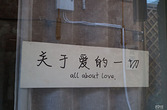 关于爱的一切
all about love.